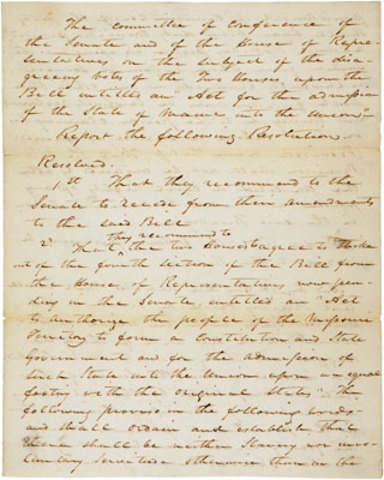 The committee of conference of
the Senate and of the House of Repre-
sentatives on the subject of the disa-
greeing votes of the Two Houses, upon the
Bill entitled an "Act for the admission
of the State of Maine into the Union"
Report the following Resolution.
Resolved.
1st That they recommend to the
Senate to recede from their amendments
to the said Bill
they recommend to
2d That the two Houses agree to strike
out of the fourth section of the Bill from
the House of Representatives now pen-
ding in the Senate, entitled an "Act
to authorize the people of the Missouri
Territory to form a Constitution and State
Government and for the admission of
such State into the Union upon an equal
footing with the original States". The
following proviso in the following words
and shall ordain and establish that
there shall be neither Slavery nor invo-
luntary servitude otherwise than in the